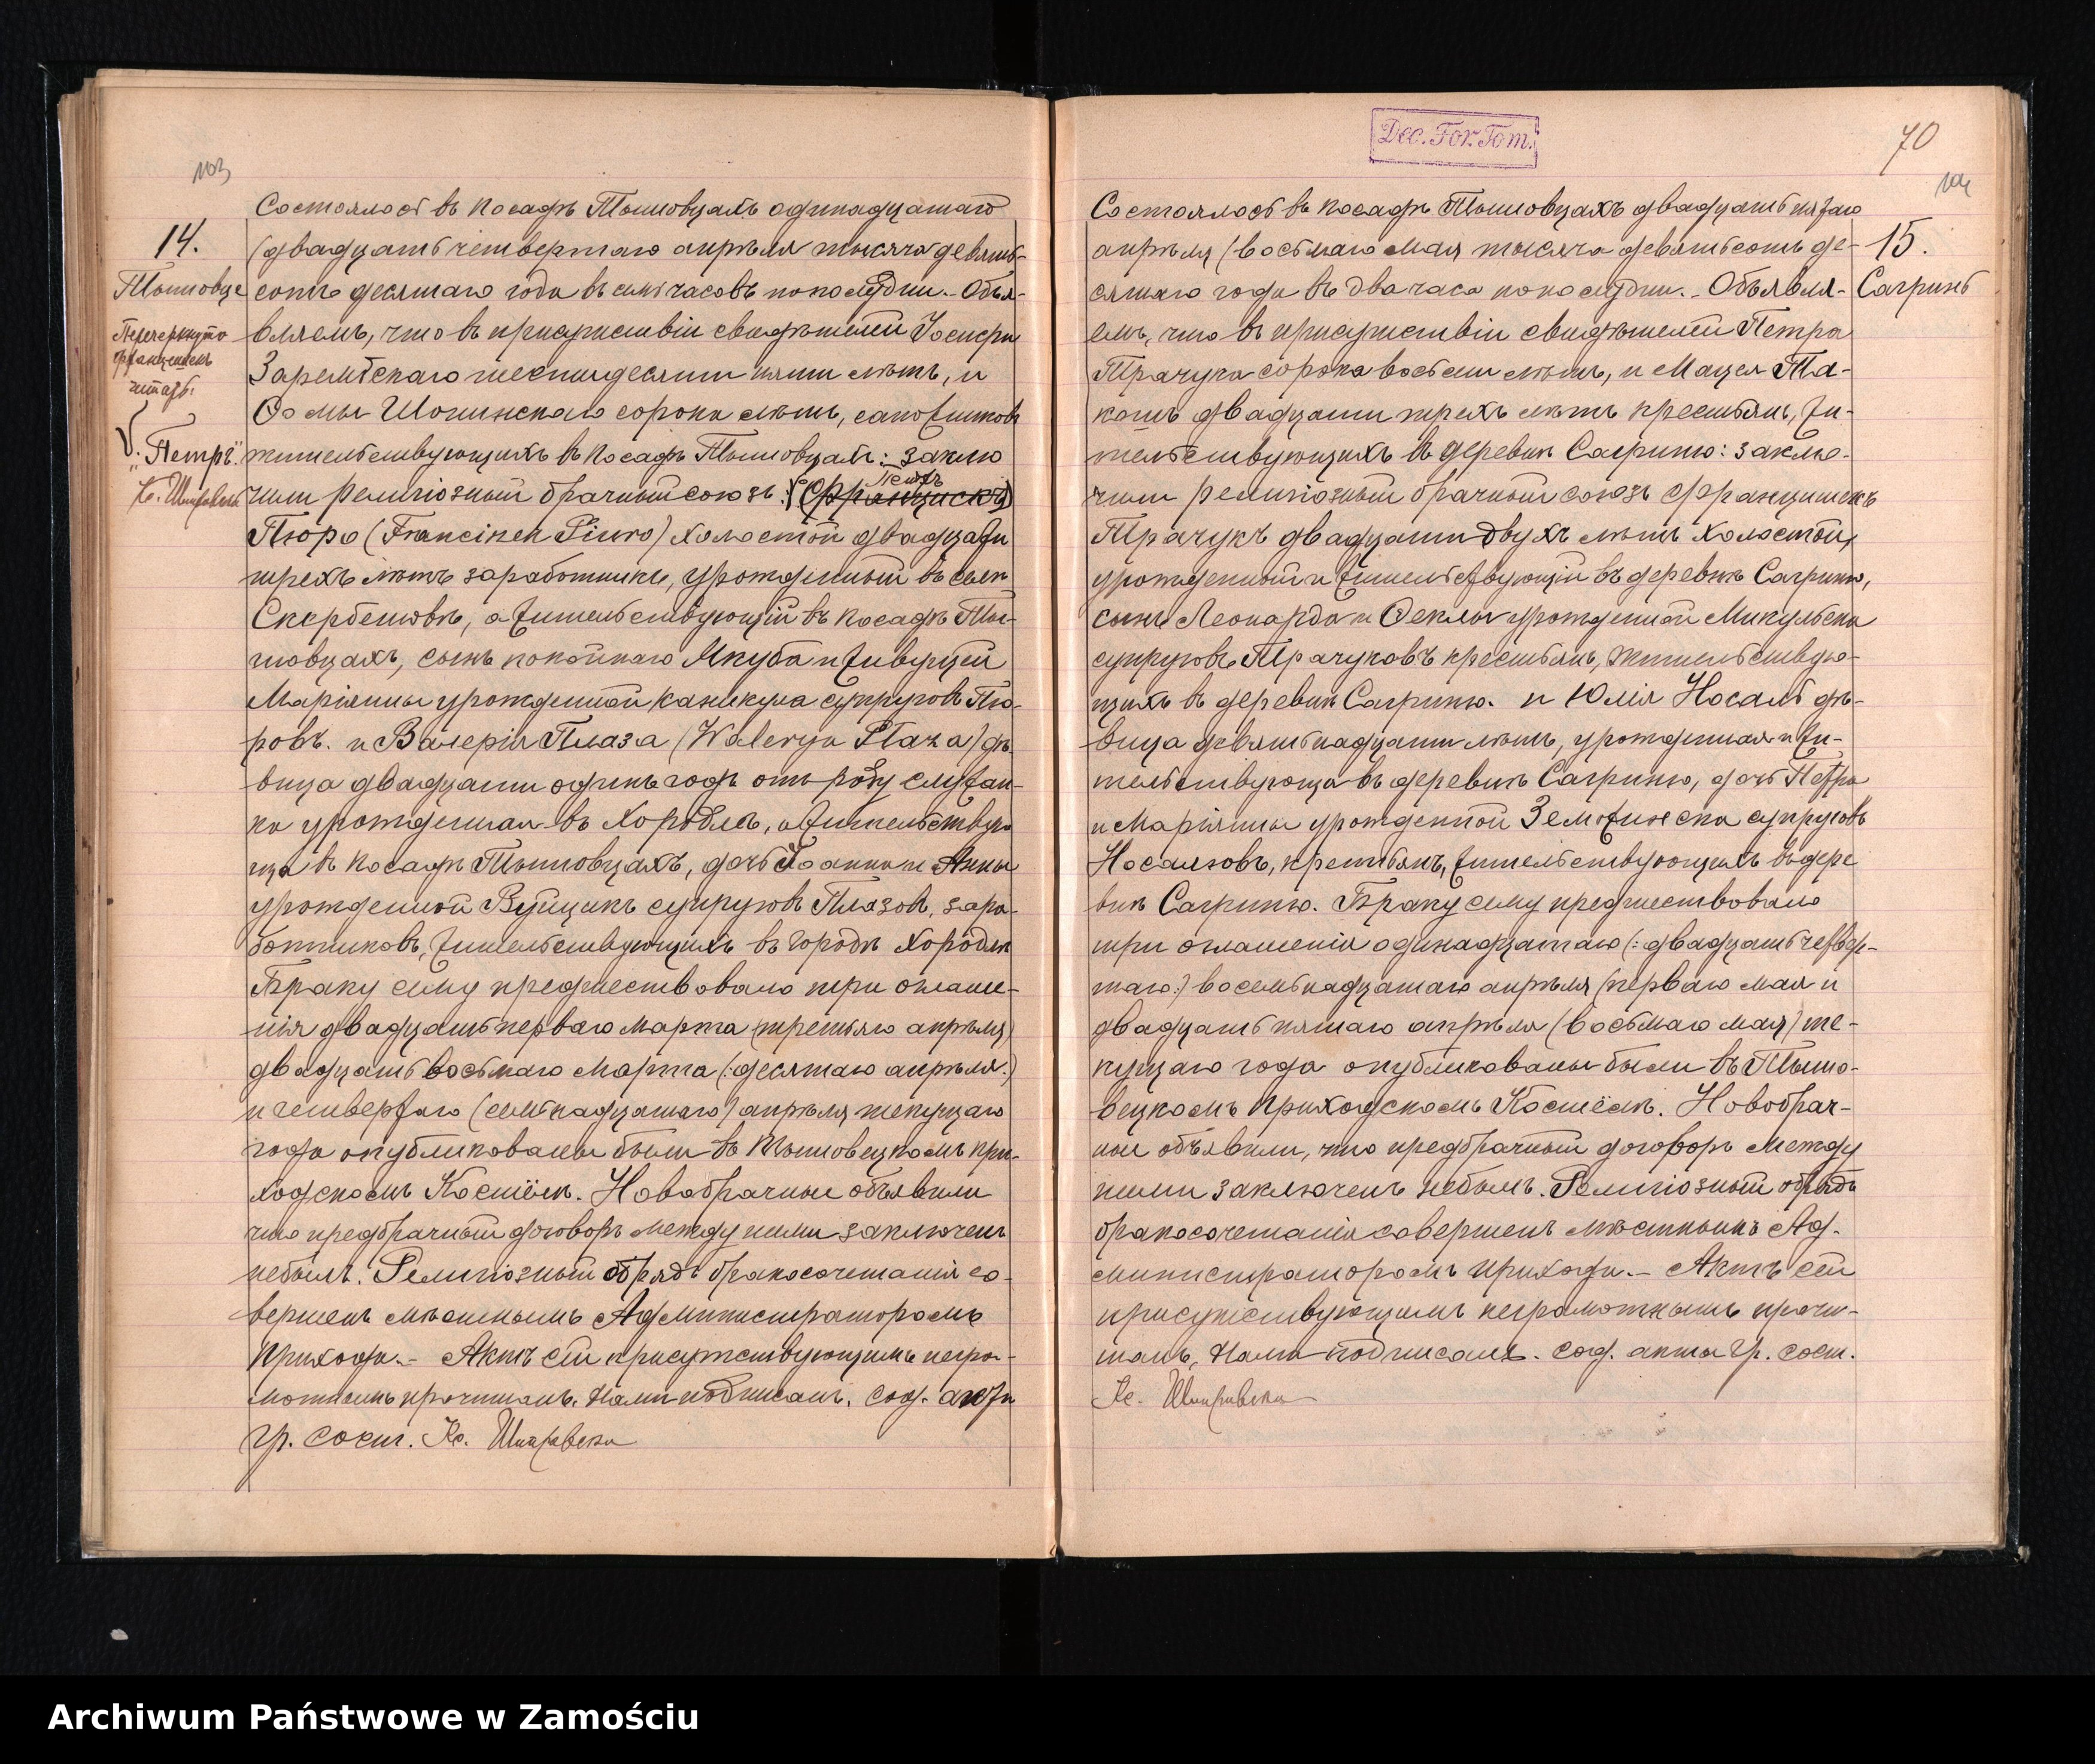 103
14.
Тышовце
Перечеркнуто
францишекъ
читать:
V. "Петръ".
Кс.
Состоялось въ посадѣ Тышовцахъ одинадцатаго
(двадцать четвертаго апрѣля тысяча девять-
сотъ десятаго года въ семь часовъ пополудни. - Объя-
вляемъ, что въ присутствіи свидѣтелей Іосифа
Зарембскаго шестидесяти пяти лѣтъ, и
Ѳомы сорока лѣтъ, сапожниковъ
жительствующихъ въ посадѣ Тышовцахъ: заклю
чили религіозный брачный союзъ: Петръ (Францискъ)
Пюро (Francisek Piuro) холостой двадцати
трехъ лѣтъ заработникъ, урожденный въ селѣ
Скербешовѣ, а жительствующій въ посадѣ Ты-
шовцахъ, сынъ покойнаго Якуба и живущей
Маріянны урожденной Каникула супруговъ Пю-
ровъ. и Валерія Плаза (Waleryja Płaza) дѣ-
вица двадцати одинъ годъ отъ роду служан-
ка урожденная въ Хороблѣ, а жительствую
ща въ посадѣ Тышовцахъ, дочь Іоанна и Анны
урожденной Вуйцикъ супруговъ Плазовъ, зара-
ботниковъ, жительствующихъ въ городѣ
Браку сему предшествовало три оглаше-
нія двадцать перваго марта (третьяго апрѣля)
двадцать восьмаго марта (:десятаго апрѣля:)
и четвертаго (семьнадцатаго) апрѣля текущаго
года опубликованы были въ Тышовецкомъ при-
ходскомъ Костёлѣ. Новобрачные объявили
что предбрачный договоръ между ними заключенъ
небылъ. Религіозный обрядъ бракосочетанія со-
вершенъ мѣстнымъ Администраторомъ
прихода. - Актъ сей присутствующимъ негра-
мотнымъ прочитанъ, Нами подписанъ. Сод. акта
гр. сост. Кс.
Dec. For. Tom.
70
104
15.
Сагринь
Состоялось въ посадѣ Тышовцахъ двадцать пятаго
апрѣля (восьмаго мая тысяча девятьсотъ де-
сятаго года въ два часа пополудни. - Объявля-
емъ, что въ присутствіи свидѣтелей Петра
Трачука сорока восьми лѣтъ, и Мацея
двадцати трехъ лѣтъ крестьянъ, жи-
тельствующихъ въ деревнѣ Сагриню: заклю-
чили религіозный брачный союзъ Францишекъ
Трачукъ двадцати двухъ лѣтъ холостой,
урожденный и жительствующій въ деревнѣ Сагриню,
сынъ Леонарда и Ѳеклы урожденной Микульска
супруговъ Трачуковъ крестьянъ, жительствую-
щихъ въ деревнѣ Сагриню. и Юлія Носаль дѣ-
вица девятьнадцати лѣтъ, урожденная и жи-
тельствующа въ деревнѣ Сагриню, дочь Петра
и Маріянны урожденной супруговъ
Носалювъ, крестьянъ, жительствующихъ въ дере
внѣ Сагриню. Браку сему предшествовало
три оглашенія одинадцатаго (: двадцать четвер-
таго:) восемьнадцатаго апрѣля (перваго мая и
двадцать пятаго апрѣля (восьмаго мая) те-
кущаго года опубликованы были въ Тышо-
вецкомъ приходскомъ Костёлѣ. Новобрач-
ные объявили, что предбрачный договоръ между
ними заключенъ небылъ. Религіозный обрядъ
бракосочетанія совершенъ мѣстнымъ Ад-
министраторомъ прихода. - Актъ сей
присутствующимъ неграмотнымъ прочи-
танъ, Нами подписанъ. Сод. акты гр. сост.
Кс.
Archiwum Państwowe w Zamościu